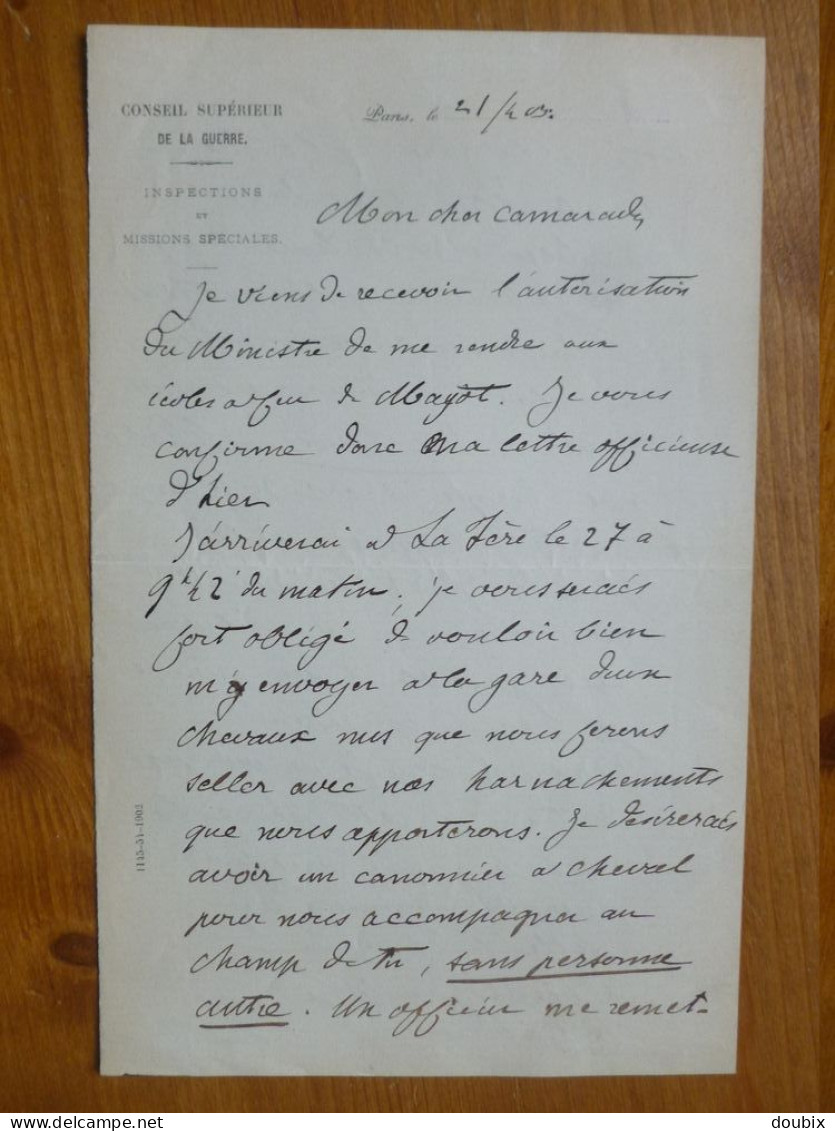 CONSEIL SUPÉRIEUR
DE LA GUERRE.
INSPECTIONS
ET
MISSIONS SPECIALES.
Paris, le 21/4 03.
Mon cher camarade,
Je viens de recevoir l'autorisation
du Ministre de me rendre aux
écoles à feu de Mayot. Je vous
confirme donc ma lettre officieuse
d'hier
J'arriverai à La Fère le 27 à
9h42' du matin; je vous serais
fort obligé de vouloir bien
m'y envoyer à la gare deux
chevaux nus que nous ferons
seller avec nos harnachements
que nous apporterons. Je désirerais
avoir un canonnier à cheval
pour nous accompagner au
champ de tir, sans personne
autre. Un officier me remet-
1145-51-1902
delcampe.net
doubix